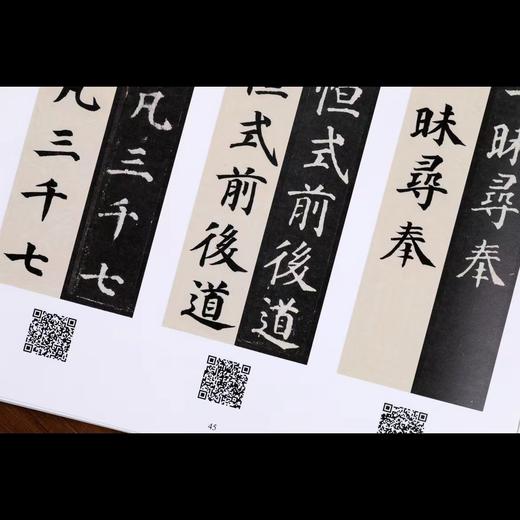 昧尋奉
昧尋奉
恒式前後道
恒式前後道
凡三千七
凡三千七
45